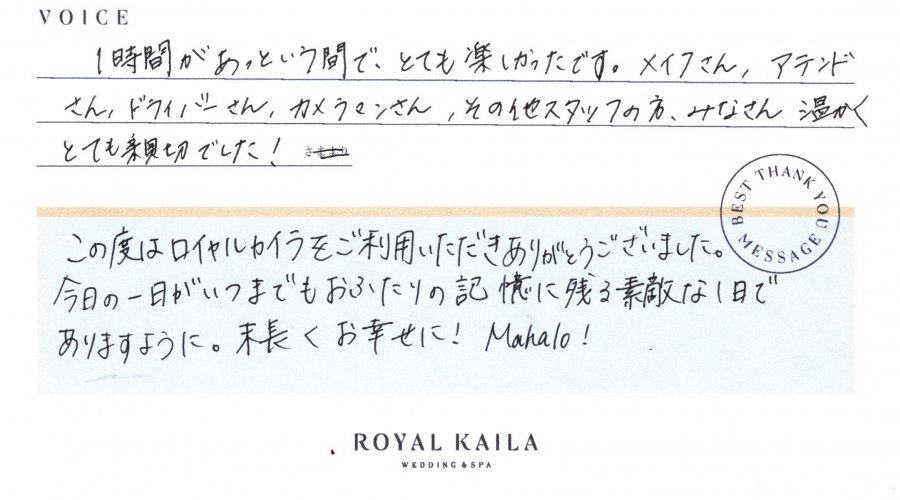 VOICE
1時間があっという間で、とても楽しかったです。メイクさん、アテンド
さん、ドライバーさん、カメラマンさん、その他スタッフの方、みなさん 温かく
とても親切でした！
BEST THANK YOU MESSAGE
この度はロイヤルカイラをご利用いただきありがとうございました。
今日の一日がいつまでもおふたりの記憶に残る素敵な1日で
ありますように。末長くお幸せに！ Mahalo！
ROYAL KAILA
WEDDING & SPA